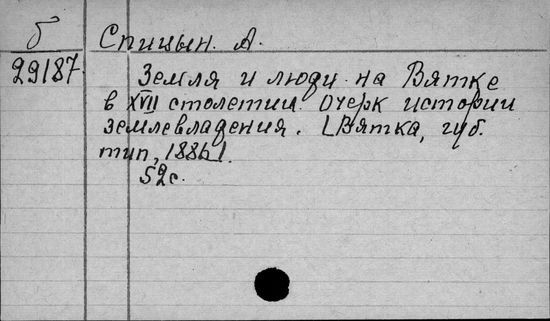 б Спицын. А.
29187. Земля и люди на Вятке
в XVII столетии. Очерк истории
землевладения. [Вятка, губ.
тип, 1886].
52 с.